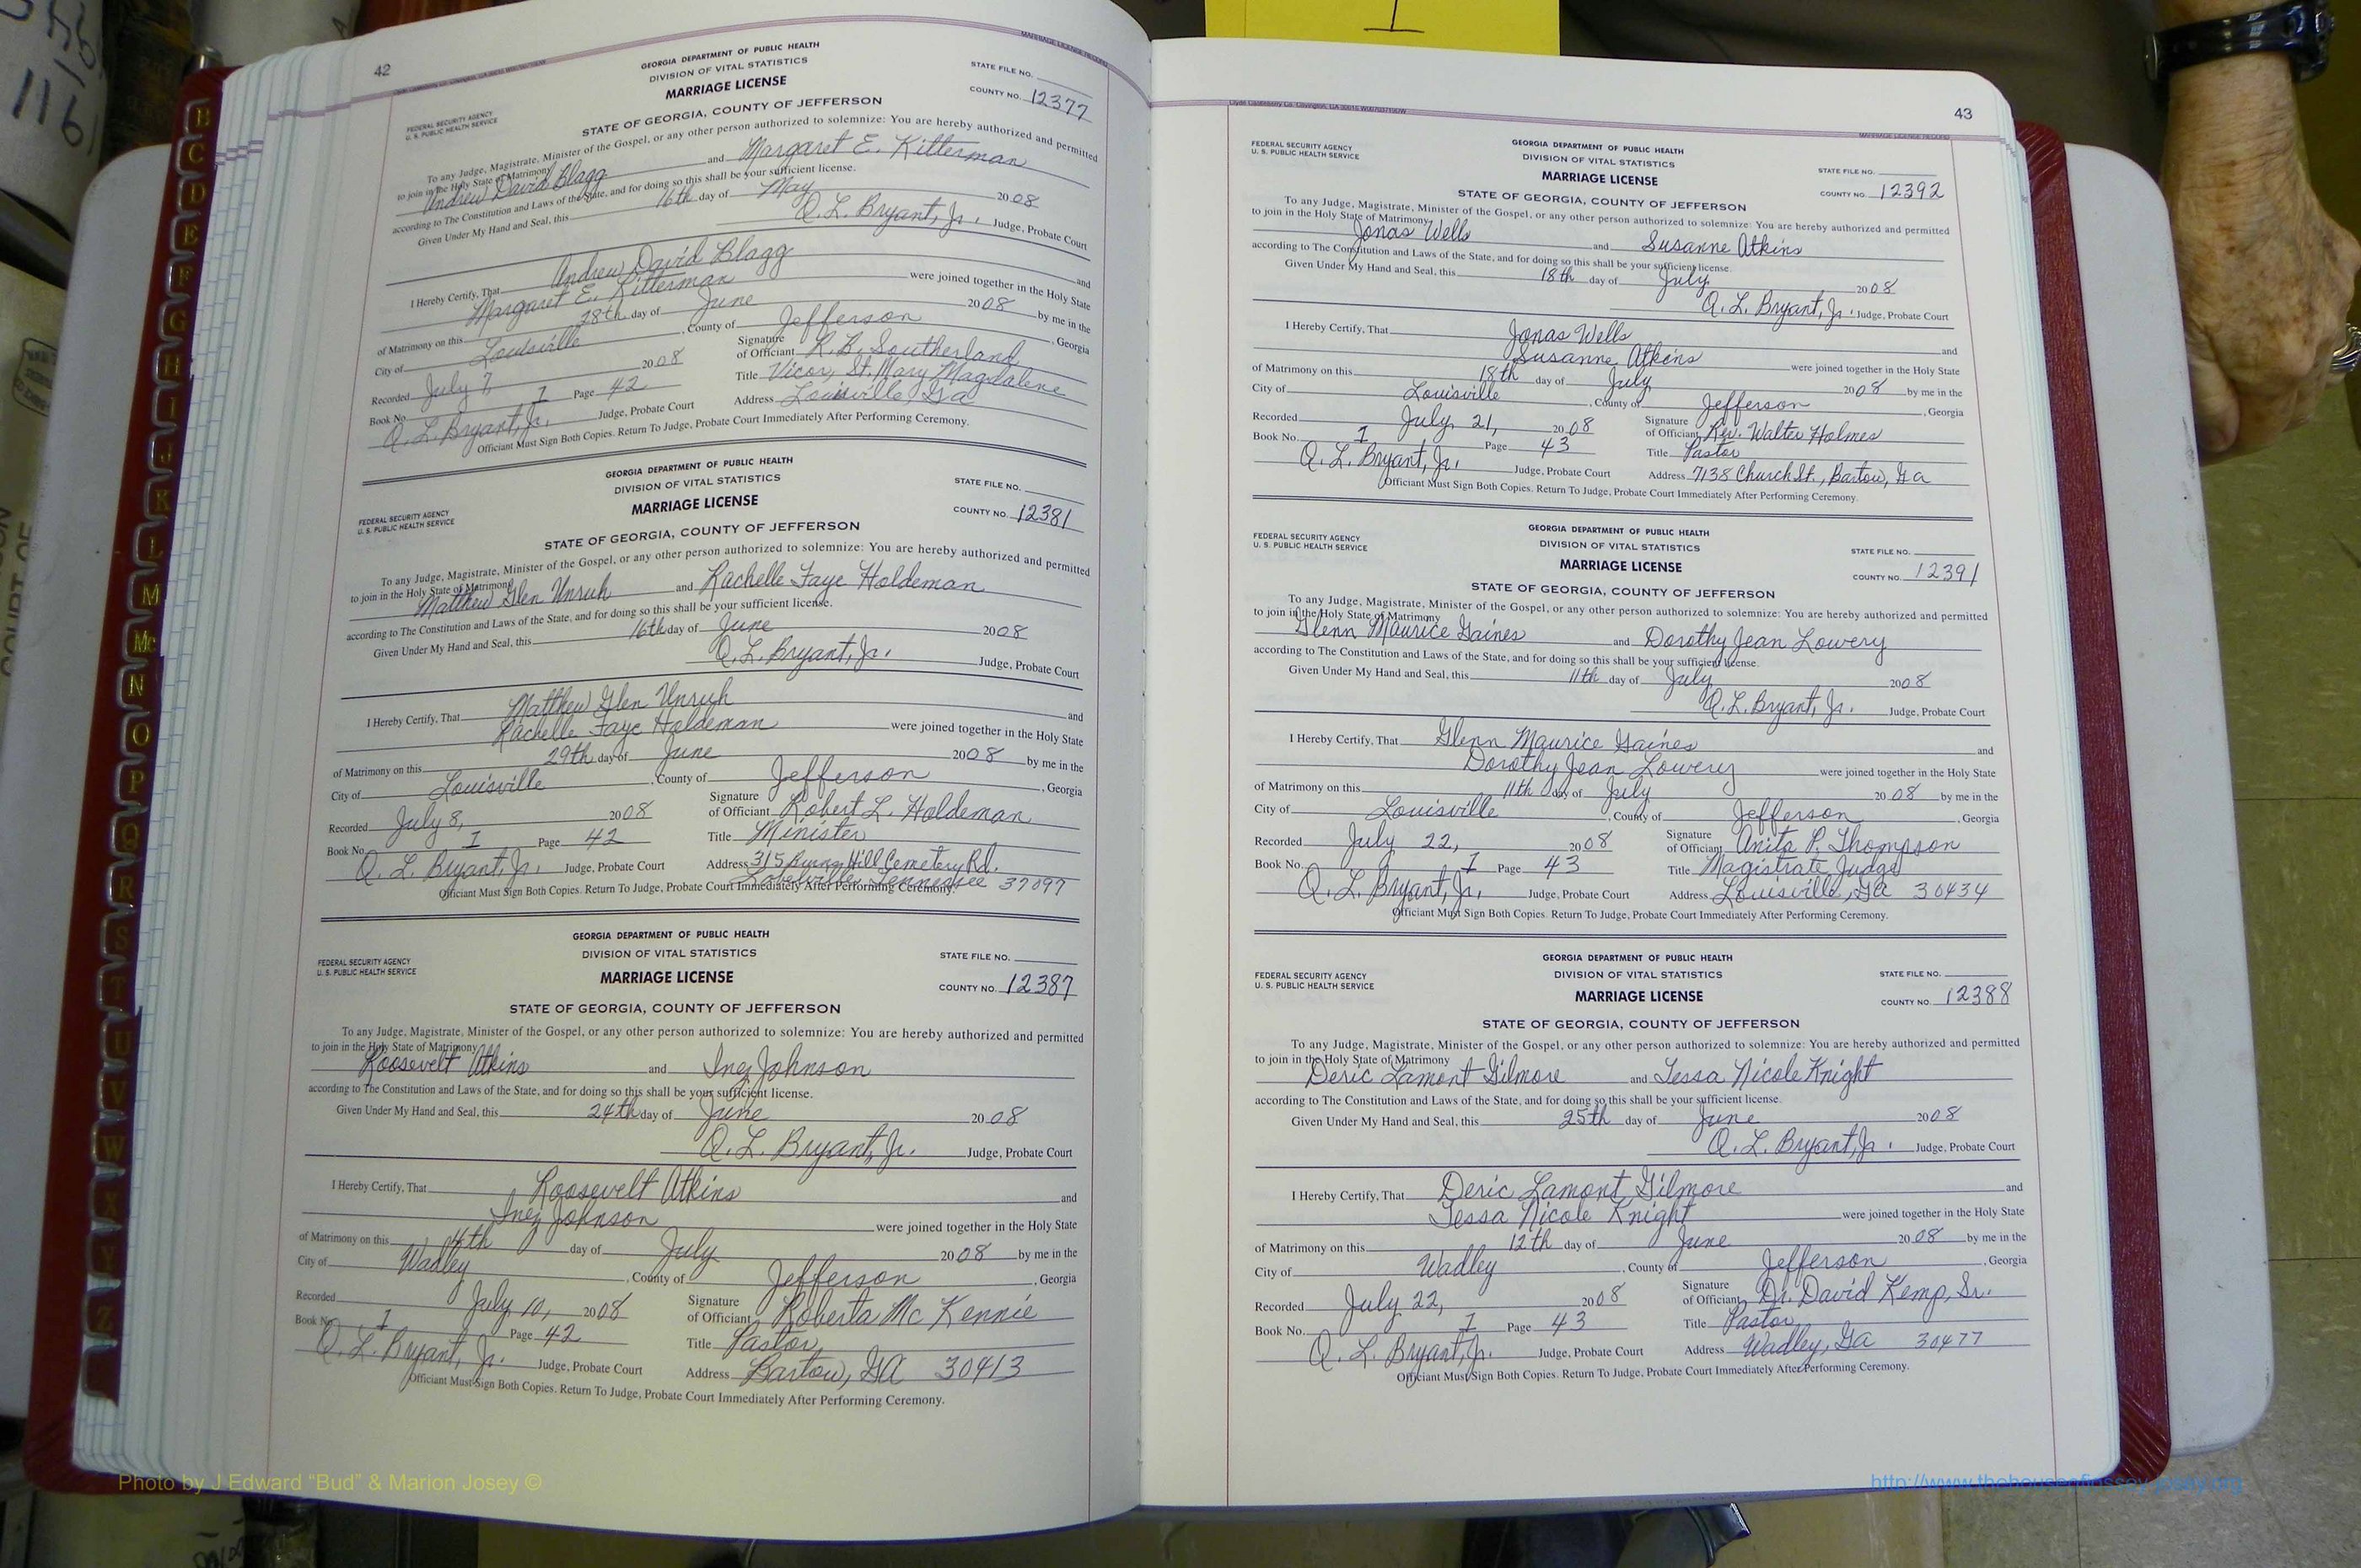 1
42
MARRIAGE LICENSE RECORD
GEORGIA DEPARTMENT OF PUBLIC HEALTH
DIVISION OF VITAL STATISTICS
MARRIAGE LICENSE
STATE OF GEORGIA, COUNTY OF JEFFERSON
FEDERAL SECURITY AGENCY
U. S. PUBLIC HEALTH SERVICE
STATE FILE NO.
COUNTY NO. 12377
To any Judge, Magistrate, Minister of the Gospel, or any other person authorized to solemnize: You are hereby authorized and permitted
to join in the Holy State of Matrimony
Andrew David Blagg and Margaret E. Kitterman
according to The Constitution and Laws of the State, and for doing so this shall be your sufficient license.
Given Under My Hand and Seal, this 16th day of May 2008
Q. L. Bryant, Jr. Judge, Probate Court
I Hereby Certify, That Andrew David Blagg and
Margaret E. Kitterman were joined together in the Holy State
of Matrimony on this 28th day of June 2008 by me in the
City of Louisville, County of Jefferson, Georgia
Recorded July 7, 2008 Signature of Officiant R. B. Southerland
Book No. 1 Page 42 Title Vicor, St. Mary Magdalene
Q. L. Bryant, Jr. Judge, Probate Court Address Louisville, Ga
Officiant Must Sign Both Copies. Return To Judge, Probate Court Immediately After Performing Ceremony.
GEORGIA DEPARTMENT OF PUBLIC HEALTH
DIVISION OF VITAL STATISTICS
MARRIAGE LICENSE
STATE OF GEORGIA, COUNTY OF JEFFERSON
FEDERAL SECURITY AGENCY
U. S. PUBLIC HEALTH SERVICE
STATE FILE NO.
COUNTY NO. 12381
To any Judge, Magistrate, Minister of the Gospel, or any other person authorized to solemnize: You are hereby authorized and permitted
to join in the Holy State of Matrimony
Matthew Glen Unruh and Rachelle Faye Holdeman
according to The Constitution and Laws of the State, and for doing so this shall be your sufficient license.
Given Under My Hand and Seal, this 16th day of June 2008
Q. L. Bryant, Jr. Judge, Probate Court
I Hereby Certify, That Matthew Glen Unruh and
Rachelle Faye Holdeman were joined together in the Holy State
of Matrimony on this 29th day of June 2008 by me in the
City of Louisville, County of Jefferson, Georgia
Recorded July 8, 2008 Signature of Officiant Robert L. Holdeman
Book No. 1 Page 42 Title Minister
Q. L. Bryant, Jr. Judge, Probate Court Address 315 Hill Cemetery Rd.
Tennessee 37097
Officiant Must Sign Both Copies. Return To Judge, Probate Court Immediately After Performing Ceremony.
GEORGIA DEPARTMENT OF PUBLIC HEALTH
DIVISION OF VITAL STATISTICS
MARRIAGE LICENSE
STATE OF GEORGIA, COUNTY OF JEFFERSON
FEDERAL SECURITY AGENCY
U. S. PUBLIC HEALTH SERVICE
STATE FILE NO.
COUNTY NO. 12387
To any Judge, Magistrate, Minister of the Gospel, or any other person authorized to solemnize: You are hereby authorized and permitted
to join in the Holy State of Matrimony
Roosevelt Atkins and Inez Johnson
according to The Constitution and Laws of the State, and for doing so this shall be your sufficient license.
Given Under My Hand and Seal, this 24th day of June 2008
Q. L. Bryant, Jr. Judge, Probate Court
I Hereby Certify, That Roosevelt Atkins and
Inez Johnson were joined together in the Holy State
of Matrimony on this 4th day of July 2008 by me in the
City of Wadley, County of Jefferson, Georgia
Recorded July 10, 2008 Signature of Officiant Roberta Mc Kennie
Book No. 1 Page 42 Title Pastor
Q. L. Bryant, Jr. Judge, Probate Court Address Bartow, GA 30413
Officiant Must Sign Both Copies. Return To Judge, Probate Court Immediately After Performing Ceremony.
43
MARRIAGE LICENSE RECORD
FEDERAL SECURITY AGENCY
U. S. PUBLIC HEALTH SERVICE
GEORGIA DEPARTMENT OF PUBLIC HEALTH
DIVISION OF VITAL STATISTICS
MARRIAGE LICENSE
STATE OF GEORGIA, COUNTY OF JEFFERSON
STATE FILE NO.
COUNTY NO. 12392
To any Judge, Magistrate, Minister of the Gospel, or any other person authorized to solemnize: You are hereby authorized and permitted
to join in the Holy State of Matrimony
Jonas Wells and Susanne Atkins
according to The Constitution and Laws of the State, and for doing so this shall be your sufficient license.
Given Under My Hand and Seal, this 18th day of July 2008
Q. L. Bryant, Jr. Judge, Probate Court
I Hereby Certify, That Jonas Wells and
Susanne Atkins were joined together in the Holy State
of Matrimony on this 18th day of July 2008 by me in the
City of Louisville, County of Jefferson, Georgia
Recorded July 21, 2008 Signature of Officiant Rev. Walter Holmes
Book No. 1 Page 43 Title Pastor
Q. L. Bryant, Jr. Judge, Probate Court Address 7138 Church St., Bartow, Ga
Officiant Must Sign Both Copies. Return To Judge, Probate Court Immediately After Performing Ceremony.
FEDERAL SECURITY AGENCY
U. S. PUBLIC HEALTH SERVICE
GEORGIA DEPARTMENT OF PUBLIC HEALTH
DIVISION OF VITAL STATISTICS
MARRIAGE LICENSE
STATE OF GEORGIA, COUNTY OF JEFFERSON
STATE FILE NO.
COUNTY NO. 12391
To any Judge, Magistrate, Minister of the Gospel, or any other person authorized to solemnize: You are hereby authorized and permitted
to join in the Holy State of Matrimony
Glenn Maurice Gaines and Dorothy Jean Lowery
according to The Constitution and Laws of the State, and for doing so this shall be your sufficient license.
Given Under My Hand and Seal, this 11th day of July 2008
Q. L. Bryant, Jr. Judge, Probate Court
I Hereby Certify, That Glenn Maurice Gaines and
Dorothy Jean Lowery were joined together in the Holy State
of Matrimony on this 11th day of July 2008 by me in the
City of Louisville, County of Jefferson, Georgia
Recorded July 22, 2008 Signature of Officiant Anita P. Thompson
Book No. 1 Page 43 Title Magistrate Judge
Q. L. Bryant, Jr. Judge, Probate Court Address Louisville, GA 30434
Officiant Must Sign Both Copies. Return To Judge, Probate Court Immediately After Performing Ceremony.
FEDERAL SECURITY AGENCY
U. S. PUBLIC HEALTH SERVICE
GEORGIA DEPARTMENT OF PUBLIC HEALTH
DIVISION OF VITAL STATISTICS
MARRIAGE LICENSE
STATE OF GEORGIA, COUNTY OF JEFFERSON
STATE FILE NO.
COUNTY NO. 12388
To any Judge, Magistrate, Minister of the Gospel, or any other person authorized to solemnize: You are hereby authorized and permitted
to join in the Holy State of Matrimony
Deric Lamont Gilmore and Tessa Nicole Knight
according to The Constitution and Laws of the State, and for doing so this shall be your sufficient license.
Given Under My Hand and Seal, this 25th day of June 2008
Q. L. Bryant, Jr. Judge, Probate Court
I Hereby Certify, That Deric Lamont Gilmore and
Tessa Nicole Knight were joined together in the Holy State
of Matrimony on this 12th day of June 2008 by me in the
City of Wadley, County of Jefferson, Georgia
Recorded July 22, 2008 Signature of Officiant Dr. David Kemp, Sr.
Book No. 1 Page 43 Title Pastor
Q. L. Bryant, Jr. Judge, Probate Court Address Wadley, Ga 30477
Officiant Must Sign Both Copies. Return To Judge, Probate Court Immediately After Performing Ceremony.
B
C
D
E
F
G
H
I
J
K
L
M
Mc
N
O
P
Q
R
S
T
U
V
W
X
Y
Z
116
COURT OF
Photo by J Edward “Bud” & Marion Josey ©